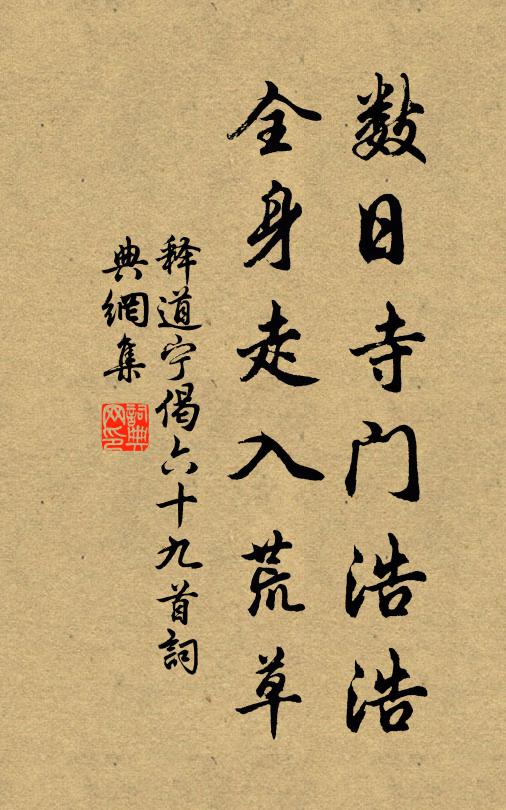 数日寺门浩浩
全身走入荒草
释道宁偈六十九首詞
典網集
詞典
网印